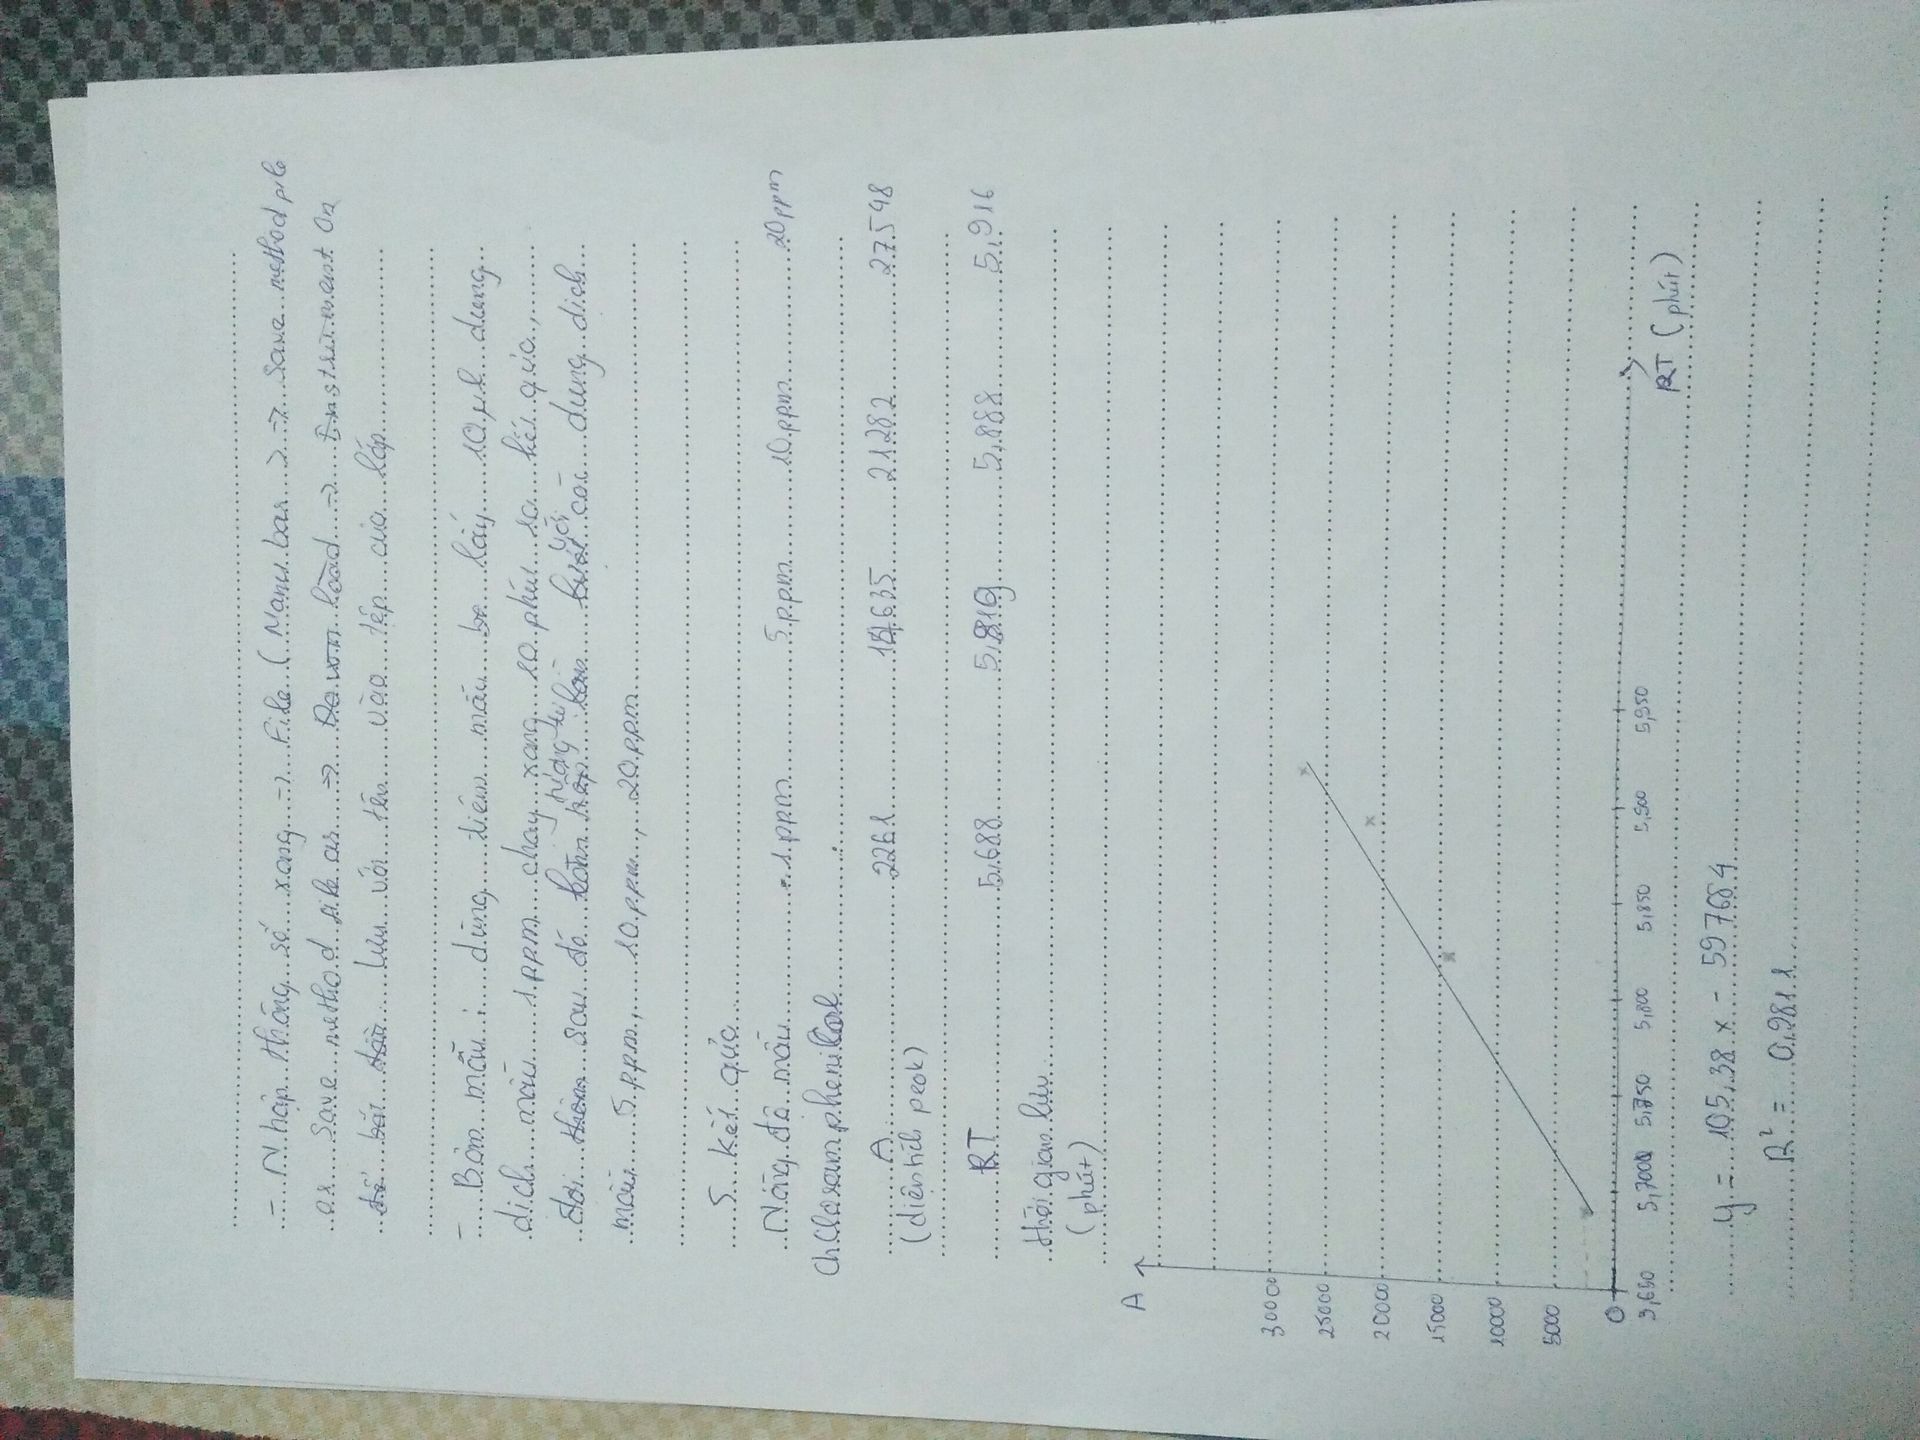 - Nhập thông số xong → File (Manu bar) → Save method file
as Save method file as → Down load → Instrument On
để bắt đầu lưu với tên vào tệp của lớp
- Bơm mẫu : dùng tiêm mẫu lấy 10 μl dung
dịch mẫu 1 ppm chạy xong 10 phút ra kết quả,
nồng độ với
đợi sau đó bơm còn dung dịch
mẫu 5 ppm, 10 ppm, 20 ppm
5. Kết quả
Nồng độ mẫu 1 ppm 5 ppm 10 ppm 20 ppm
Chlloramphenilcol
A 2261 15635 21282 27548
(diện tích peak)
RT 5,688 5,819 5,888 5,916
thời gian lưu
(phút)
A
30000
25000
20000
15000
10000
5000
0
5,650 5,7000 5,750 5,800 5,850 5,900 5,950
RT (phút)
y = 105,38 x - 597664
R² = 0,9811